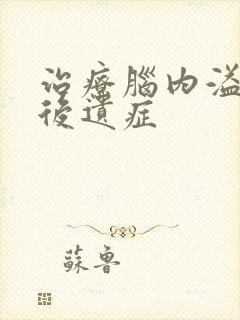 治療腦内溢
後遺症
蘇魯